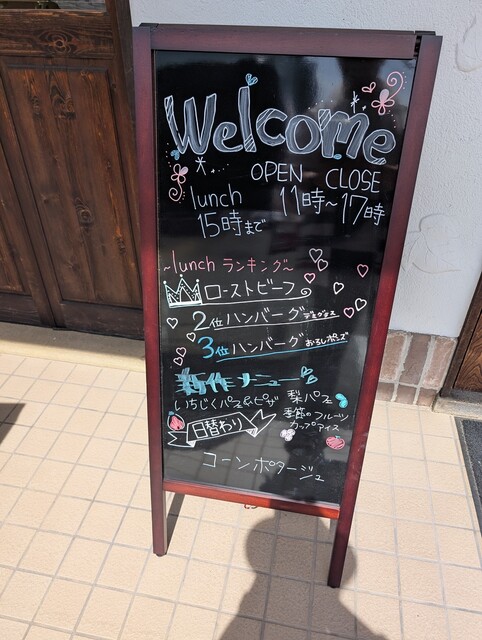 Welcome
OPEN CLOSE
lunch 11時~17時
15時まで
~lunch ランキング~
ローストビーフ
2位 ハンバーグ デミグラス
3位 ハンバーグ おろしポンズ
新作メニュー
いちじくパフェ&ピザ 梨パフェ
季節のフルーツ
カップアイス
日替わり
コーンポタージュ